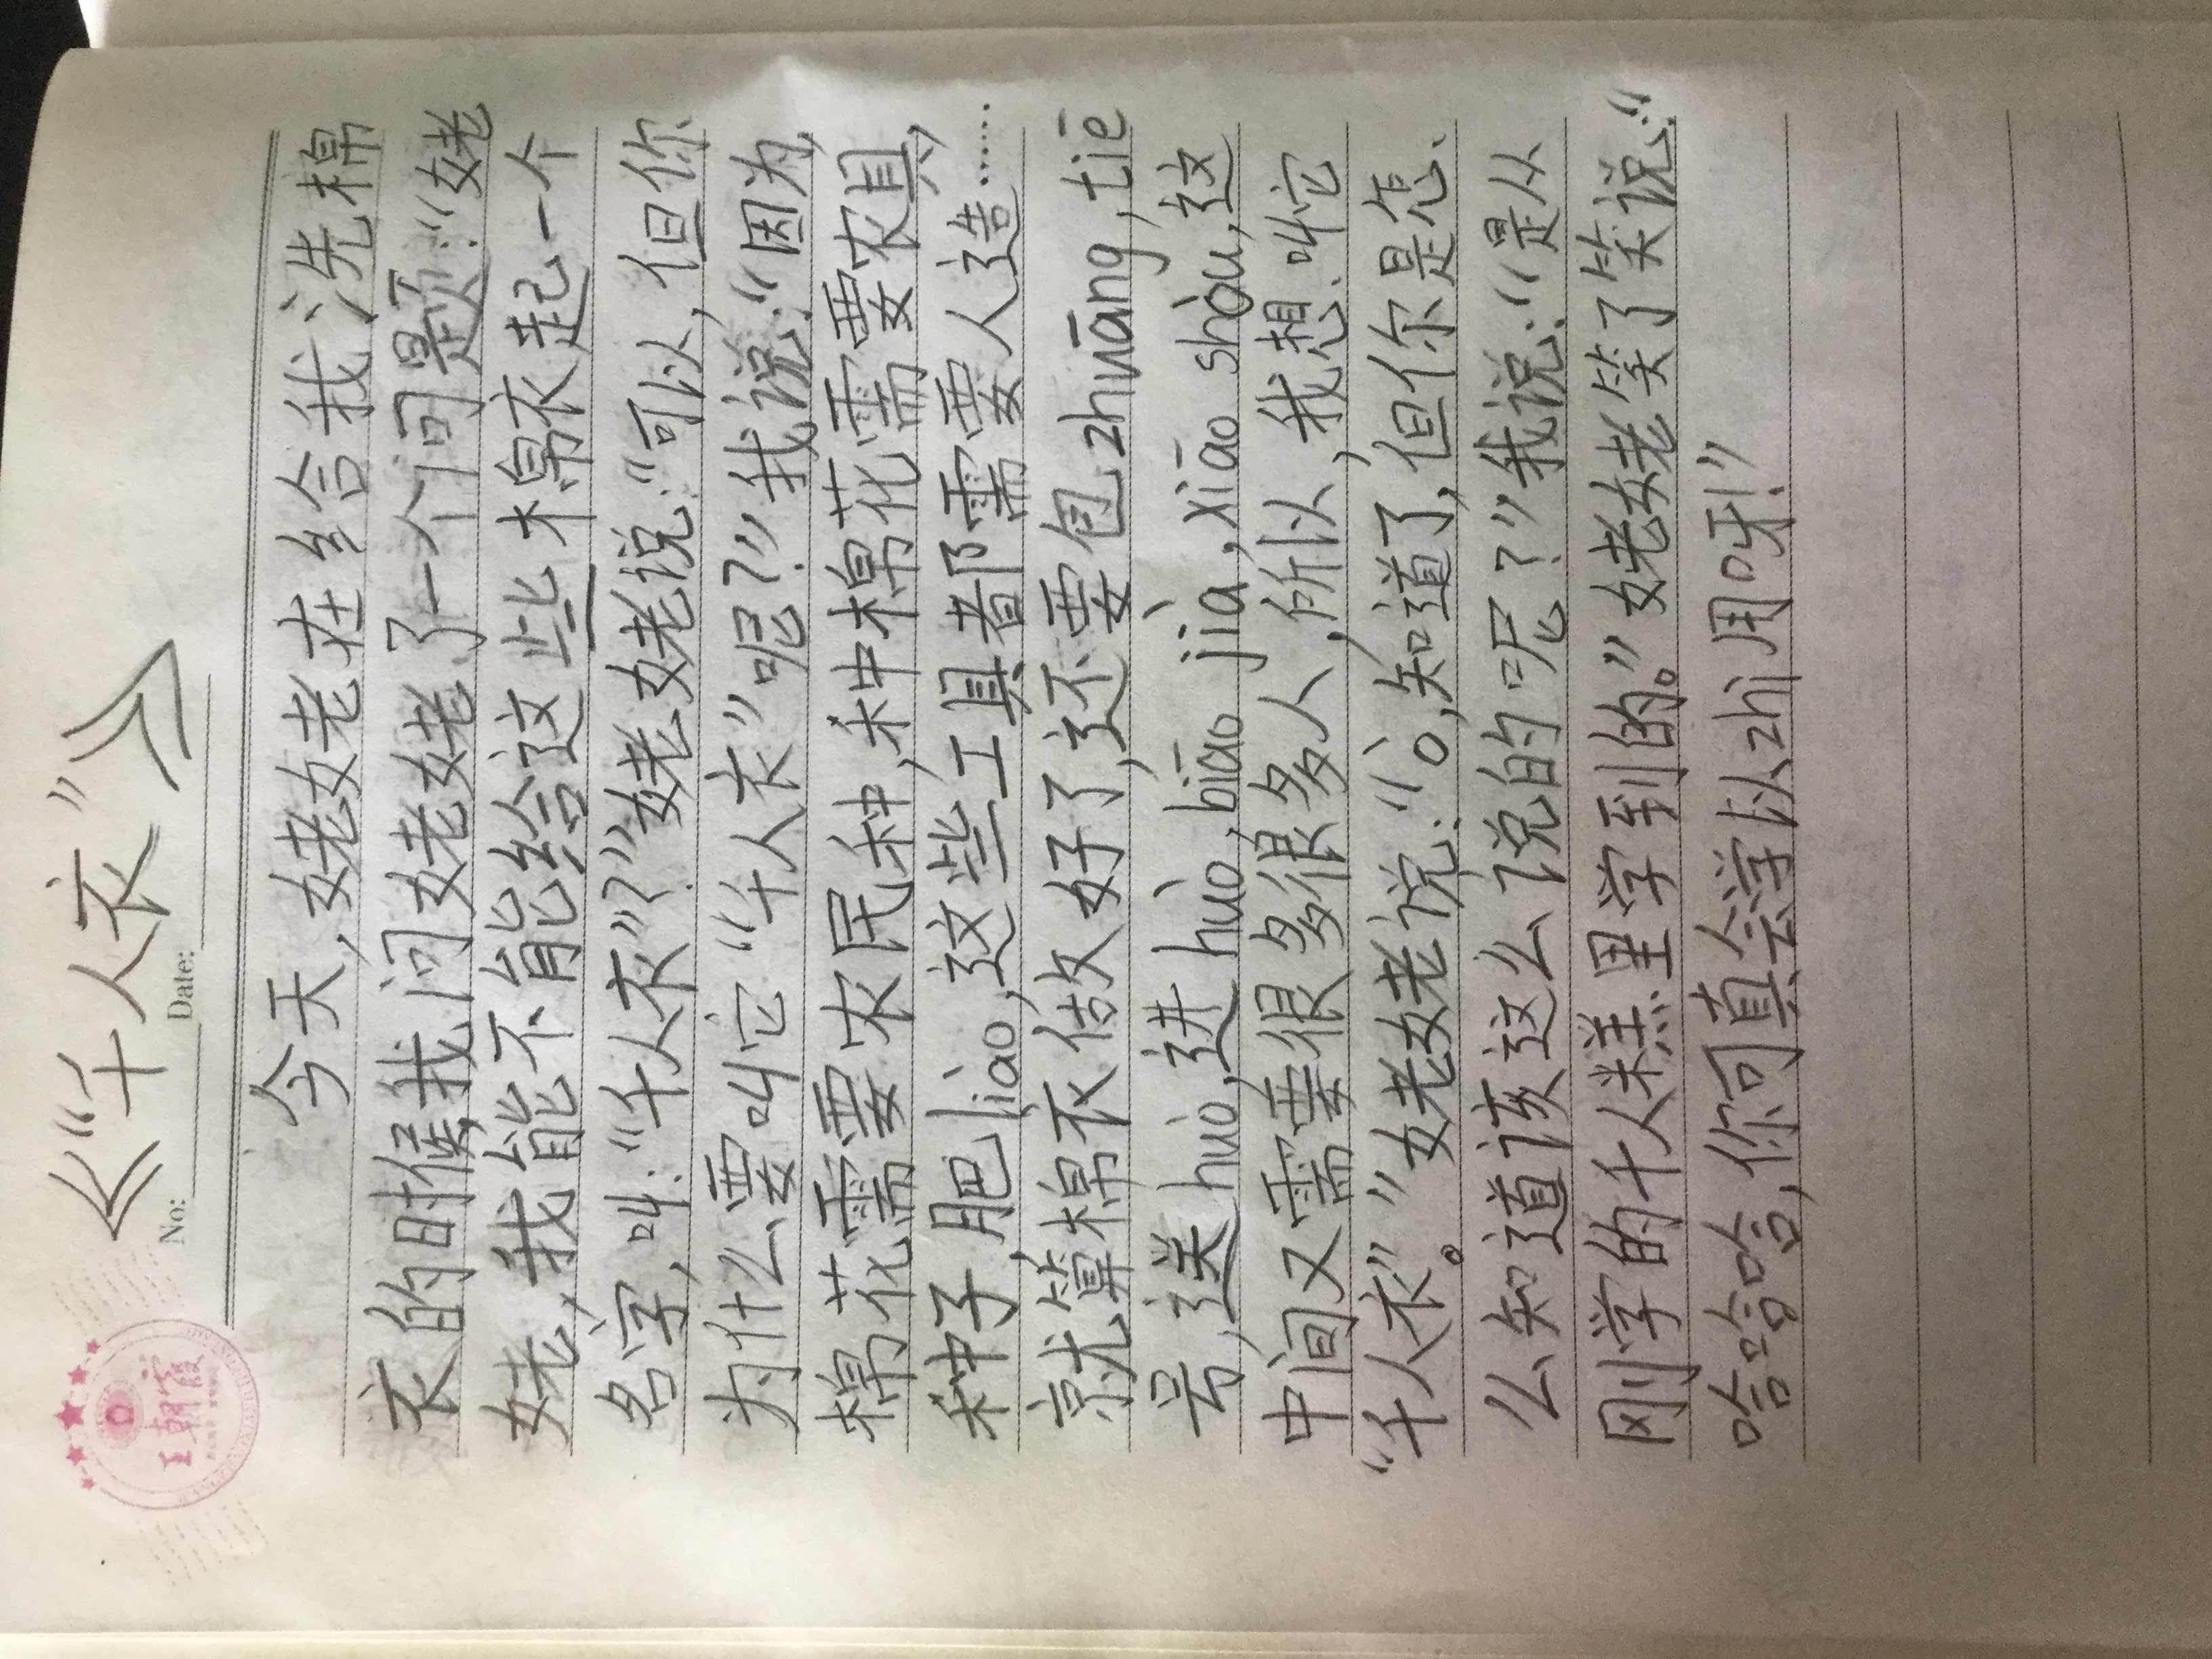 《“千人衣”》
No:
Date:
王朝霞
今天,姥姥在给我洗棉
衣的时候,我问姥姥了一个问题:“姥
姥,我能不能给这些棉衣起一个
名字,叫:“千人衣”?”姥姥说:“可以,但你
为什么要叫它“千人衣”呢?”我说:“因为,
棉花需要农民种,种棉花需要农具,
种子,肥liào,这些工具都需要人造……
就算棉衣做好了,还要包zhuāng,tiē
号,送huò,进huò,biāo jià,xiāo shòu,这
中间又需要很多很多人,所以,我想叫它
“千人衣”。”姥姥说:“ò,知道了,但你是怎
么知道该这么说的呢?”我说:“是从
刚学的千人糕里学到的。”姥姥笑了笑说:“
哈哈哈,你可真会学以zhì用呀!”